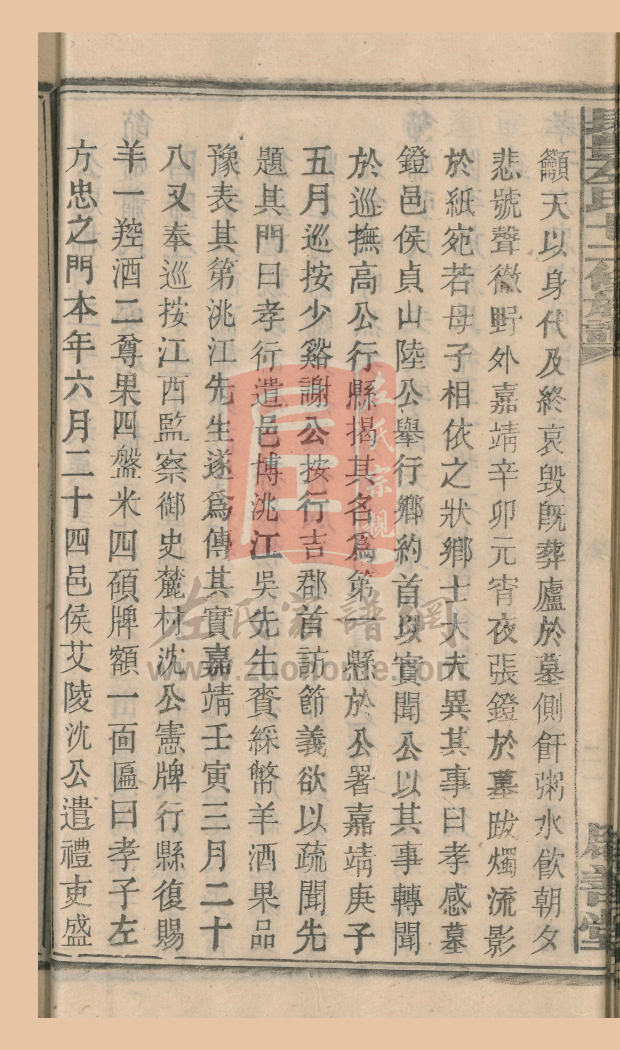 籲天以身代及終哀毀既葬廬於墓側飦粥水飲朝夕
悲號聲徹野外嘉靖辛卯元宵夜張鐙於墓跋燭流影
於紙宛若母子相依之狀鄉士大夫異其事曰孝感墓
鐙邑侯貞山陸公舉行鄉約首以實聞公以其事轉聞
於巡撫高公行縣揭其名爲第一懸於公署嘉靖庚子
五月巡按少谿謝公按行吉郡首訪節義欲以疏聞先
題其門曰孝行遣邑博洮江吳先生賫綵幣羊酒果品
豫表其第洮江先生遂爲傳其實嘉靖壬寅三月二十
八又奉巡按江西監察御史麓村沈公憲牌行縣復賜
羊一羫酒二尊果四盤米四碩牌額一面匾曰孝子左
方忠之門本年六月二十四邑侯艾陵沈公遣禮吏盛
左氏宗親
左氏家譜網
www.zuohome.com